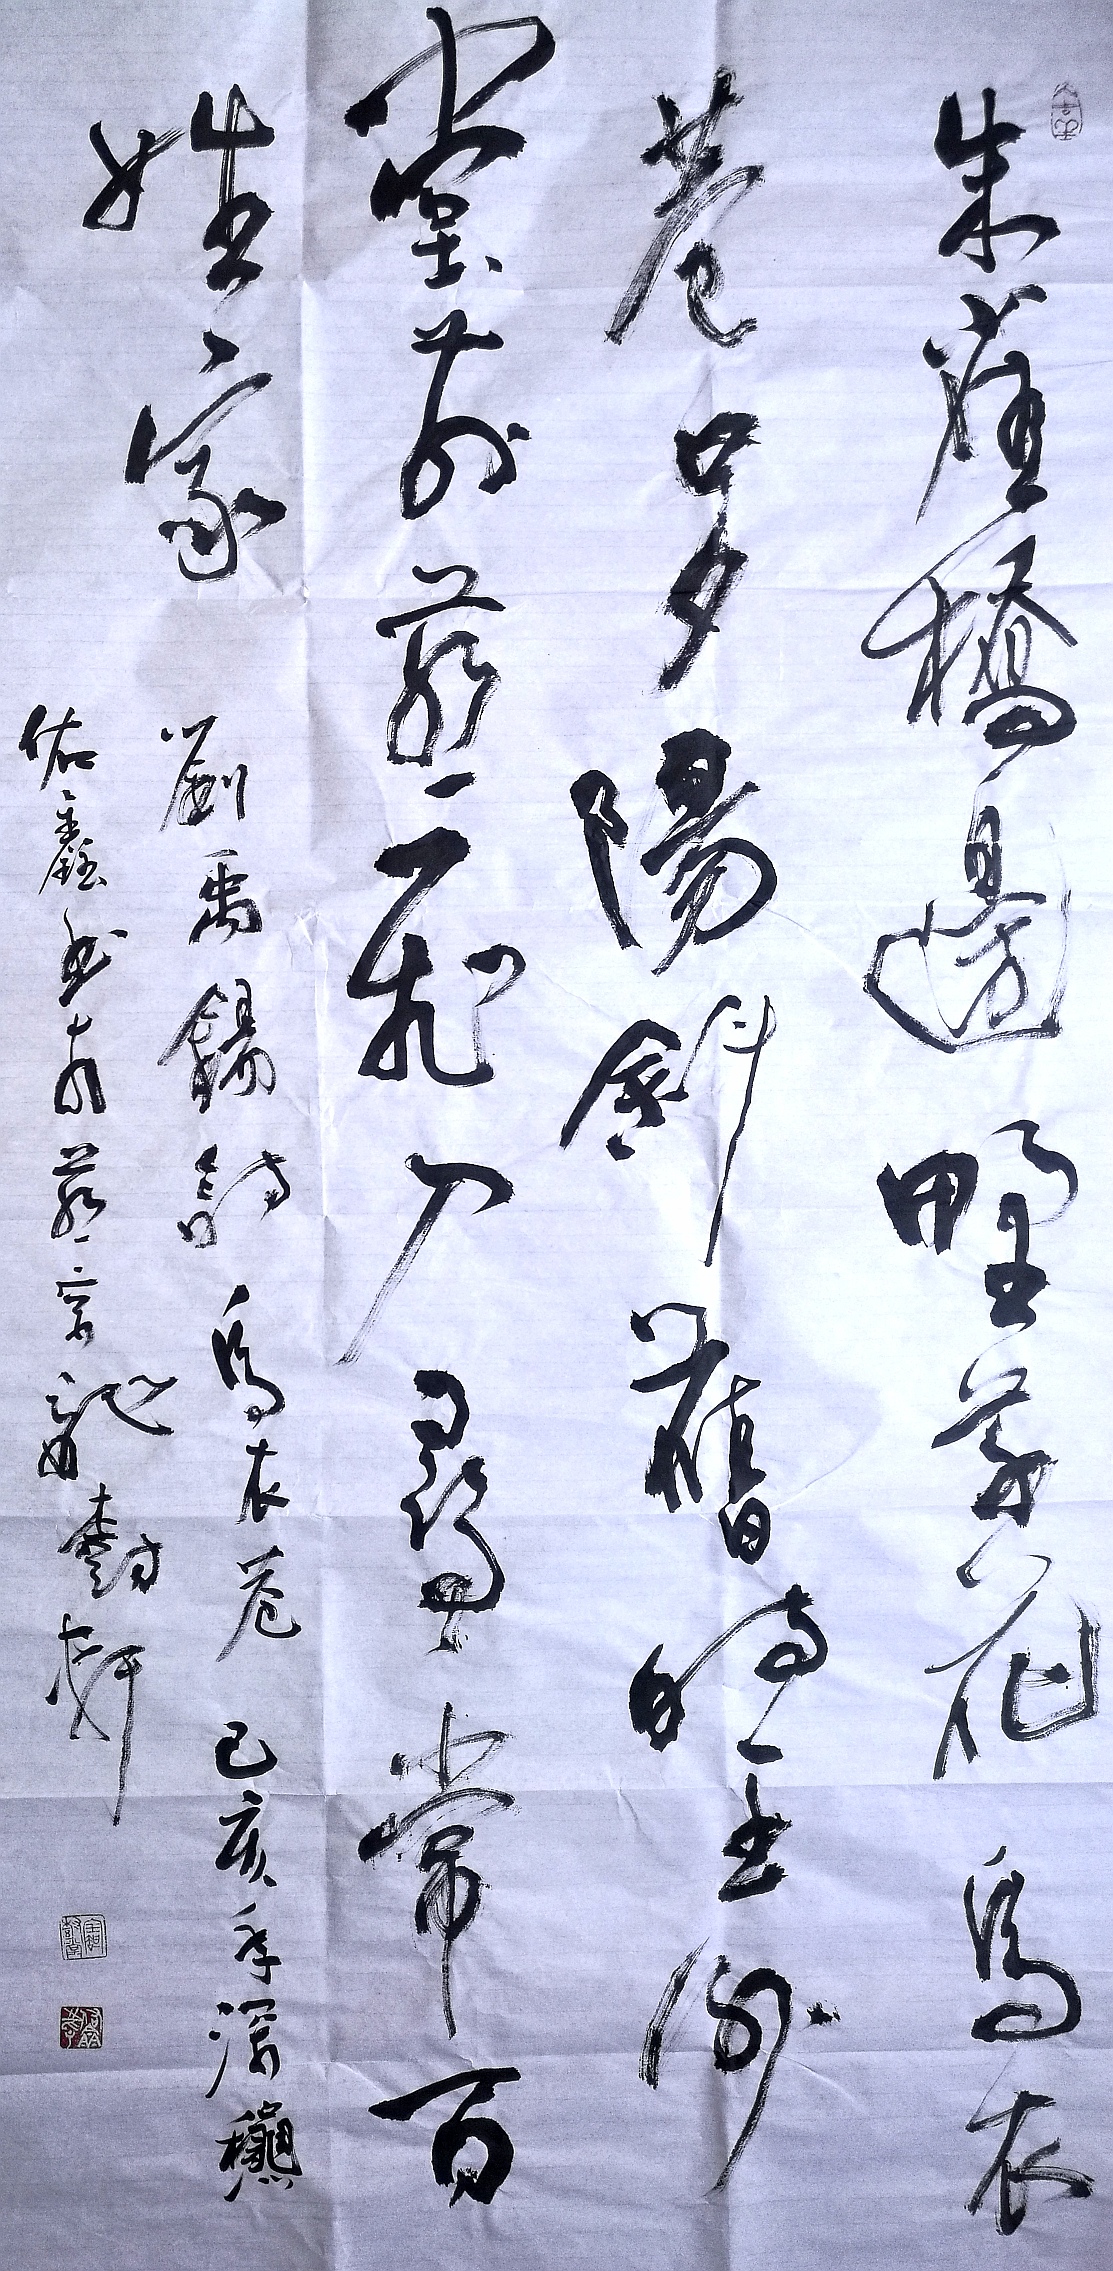 朱雀橋邊野草花烏衣
巷口夕陽斜舊時王謝
堂前燕飛入尋常百
姓家
劉禹錫詩烏衣巷 己亥年深龝
佑鑫書於燕京龍樹軒